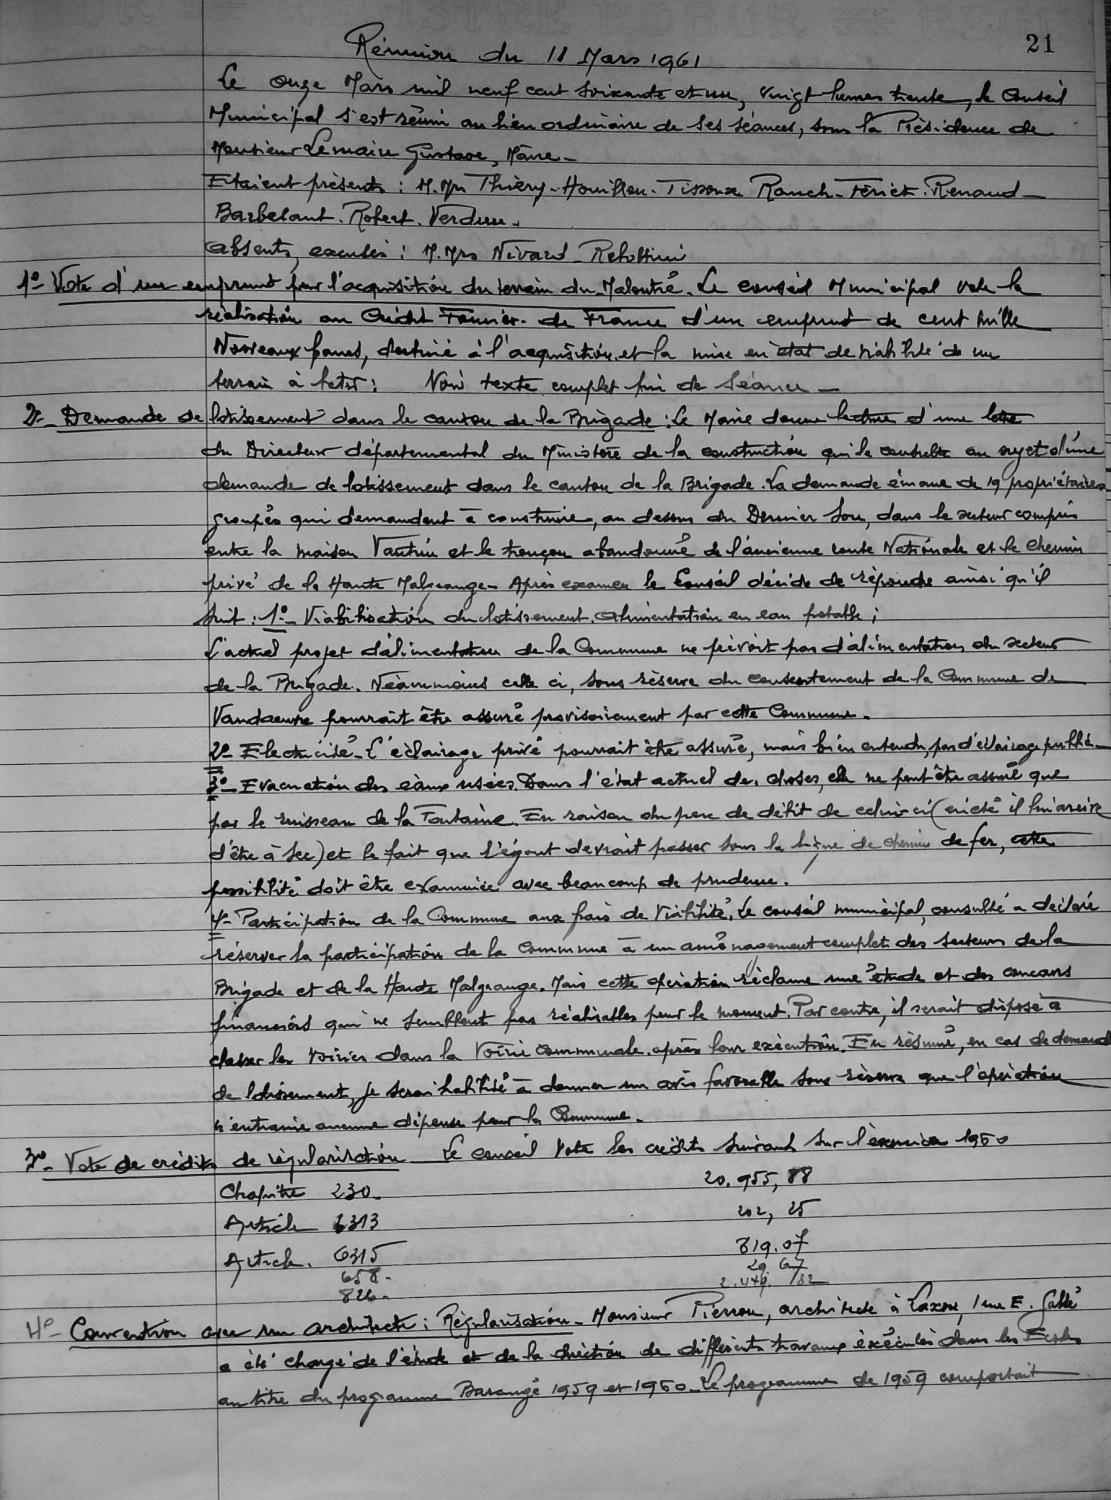 21
Réunion du 11 Mars 1961
Le onze Mars mil neuf cent soixante et un, vingt heures trente, le Conseil
Municipal s'est réuni au lieu ordinaire de ses séances, sous la Présidence de
Monsieur Lemaire Gustave, Maire.
Etaient présents : M.Mrs Thiéry - Houillon - Tissoux Rauch - Fériet - Renaud -
Barbelant. Robert. Verdun.
Absents, excusés : M.Mrs Nivard -
1º- Vote d'un emprunt pour l'acquisition du terrain du . Le conseil Municipal vote la
réalisation au Crédit Foncier de France d'un emprunt de cent mille
Nouveaux francs, destiné à l'acquisition et la mise en état de viabilité de un
terrain à bâtir : Voir texte complet fin de séance -
2º- Demande de lotissement dans le canton de la Brigade : Le Maire donne lecture d'une lettre
du Directeur départemental du Ministère de la construction qui le consulte au sujet d'une
demande de lotissement dans le canton de la Brigade. La demande émane de 19 propriétaires
groupés qui demandent à construire, au dessus du Dernier Sou, dans le secteur compris
entre la maison Vautrin et le tronçon abandonné de l'ancienne route Nationale et le chemin
privé de la Haute Malgrange - Après examen le Conseil décide de répondre ainsi qu'il
suit : 1º- Viabilisation du lotissement, alimentation en eau potable ;
L'actuel projet d'alimentation de la Commune ne prévoit pas d'alimentation du secteur
de la Brigade. Néanmoins celle ci, sous réserve du consentement de la Commune de
Vandoeuvre pourrait être assuré provisoirement par cette Commune.
2º- Electricité - L'éclairage privé pourrait être assuré, mais bien entendu, pas d'éclairage public
3º- Evacuation des eaux usées Dans l'état actuel des choses, elle ne peut être assuré que
par le ruisseau de la Fontaine. En raison du peu de débit de celui-ci (en été il lui arrive
d'être à sec) et le fait que l'égout devrait passer sous la ligne de chemin de fer, cette
possibilité doit être examinée avec beaucoup de prudence.
4º- Participation de la Commune aux frais de viabilité. Le conseil municipal, consulté a déclaré
réserver la participation de la Commune à un aménagement complet des secteurs de la
Brigade et de la Haute Malgrange. Mais cette opération réclame une étude et des concours
financiers qui ne semblent pas réalisables pour le moment. Par contre, il serait disposé à
classer les voiries dans la Voirie communale après leur exécution. En résumé, en cas de demande
de lotissement, je serai habilité à donner un avis favorable sous réserve que l'opération
n'entraine aucune dépense pour la Commune.
3º- Vote de crédits de régularisation Le conseil vote les crédits suivants sur l'exercice 1960
Chapitre 230. 20.955,88
Article 6313 202,25
Article. 6315 319.07
658. 29 67
826. 2.049.
4º- Convention avec un architecte : Régularisation - Monsieur Pierron, architecte à Laxou, 1 rue E. Gallé
a été chargé de l'étude et de la direction de différents travaux exécutés dans les Ecoles
au titre du programme Barangé 1959 et 1960. Le programme de 1959 comportait